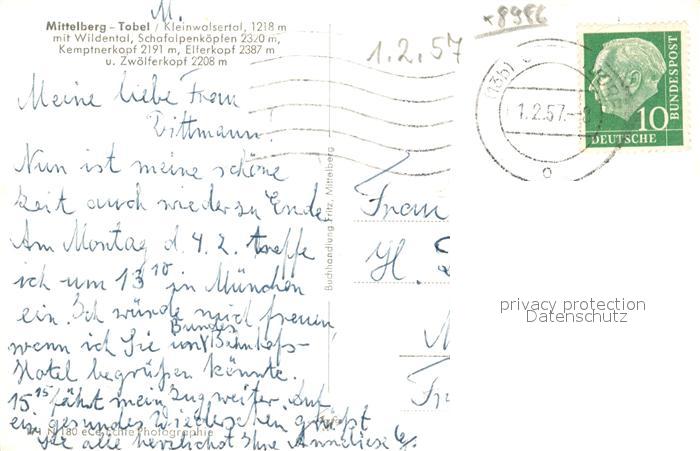 M.
Mittelberg - Tobel / Kleinwalsertal, 1218 m
mit Wildental, Schafalpenköpfen 2320 m,
Kemptnerkopf 2191 m, Elferkopf 2387 m
u. Zwölferkopf 2208 m
1.2.57
*8986
Meine liebe Frau
Dittmann!
Nun ist meine schöne
Zeit auch wieder zu Ende
Am Montag d. 4. 2. treffe
ich um 13 10 in München
ein. Ich würde mich freuen,
wenn ich Sie im Bundes Bahnhofs-
Hotel begrüßen könnte.
15 15 fährt mein Zug weiter. Auf
ein gesundes Wiedersehen grüßt
Sie alle herzlichst Ihre Anneliese G.
180 echte Photographie
Buchhandlung Fritz, Mittelberg
Frau
H.
(13b)
1.2.57.
10
DEUTSCHE
BUNDESPOST
privacy protection
Datenschutz